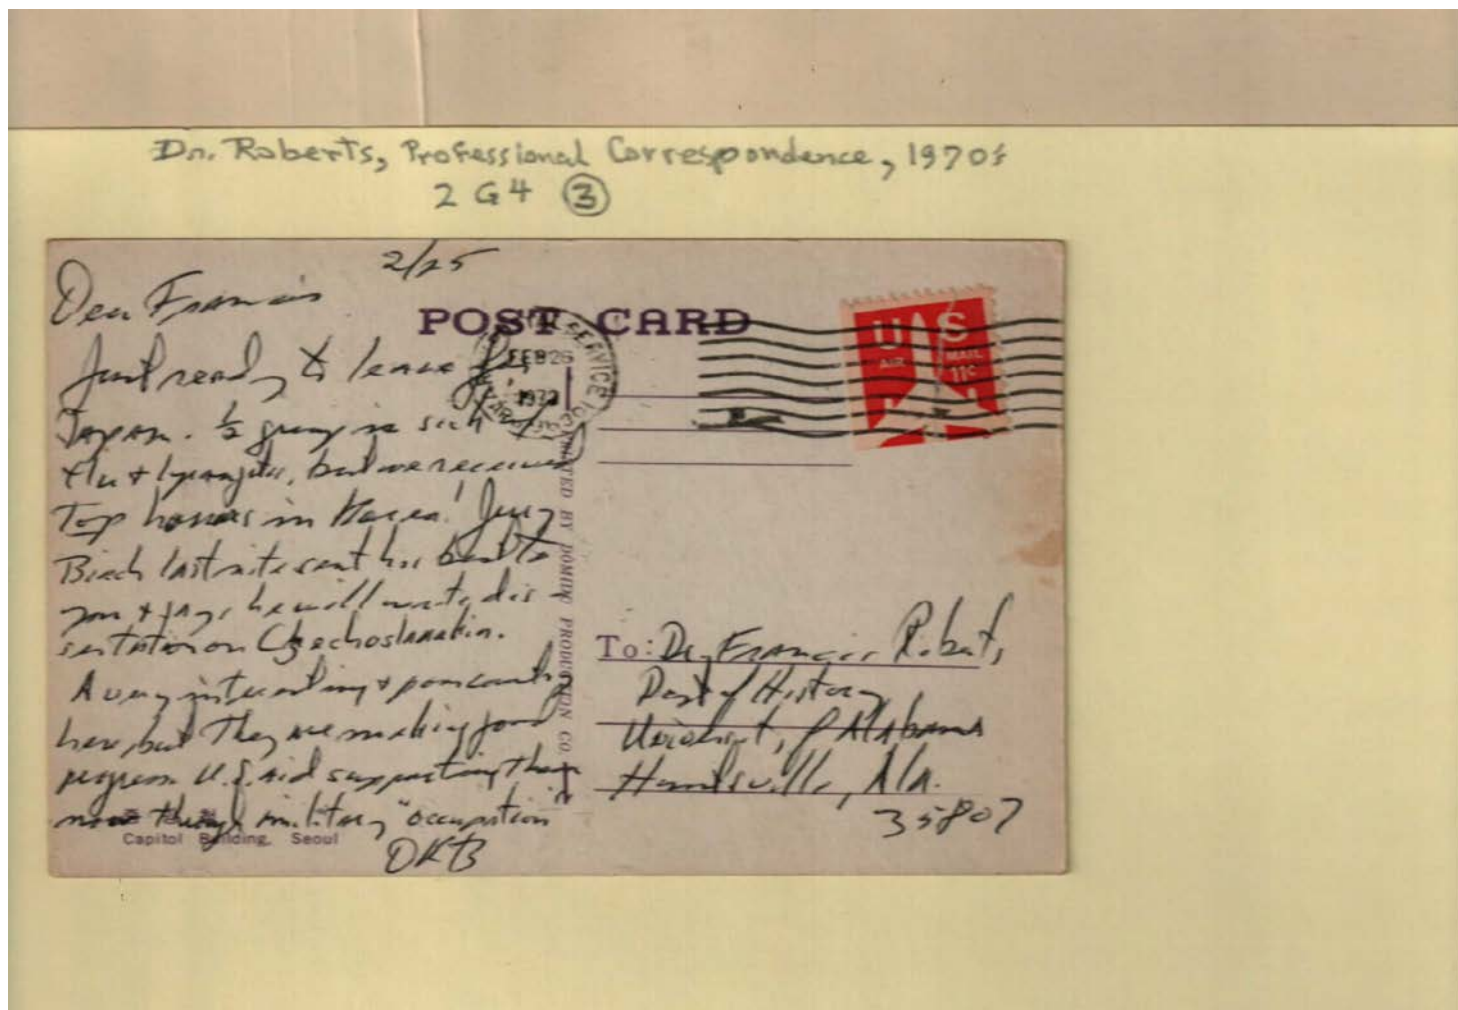 Dr. Roberts, Professional Correspondence, 1970's
2 G4 ③
2/25
Dear Frances
Just ready to leave for
Japan. ½ group is sick
flu &, but we received
Top honors in Korea! Jerry
last nite sent his best to
you & says he will write dis-
sertation on Czechoslovakia.
A very interesting & poor country
here, but they are making good
progress U.S. aid supporting them
now through military "occupation"
OKB
Capitol Building, Seoul
POST CARD
SERVICE
FEB 26
1973
PRINTED BY DOMIDO PRODUCTION CO.
U S
AIR MAIL
11c
To: Dr. Frances Roberts
Dept of History
University of Alabama
Huntsville, Ala.
35807